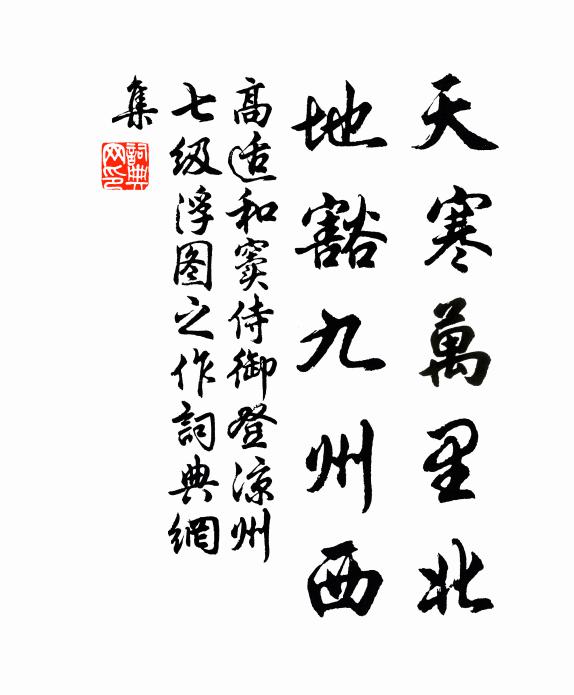 天寒萬里北
地豁九州西
高适和窦侍御登凉州
七级浮图之作詞典網
集
詞典
网印